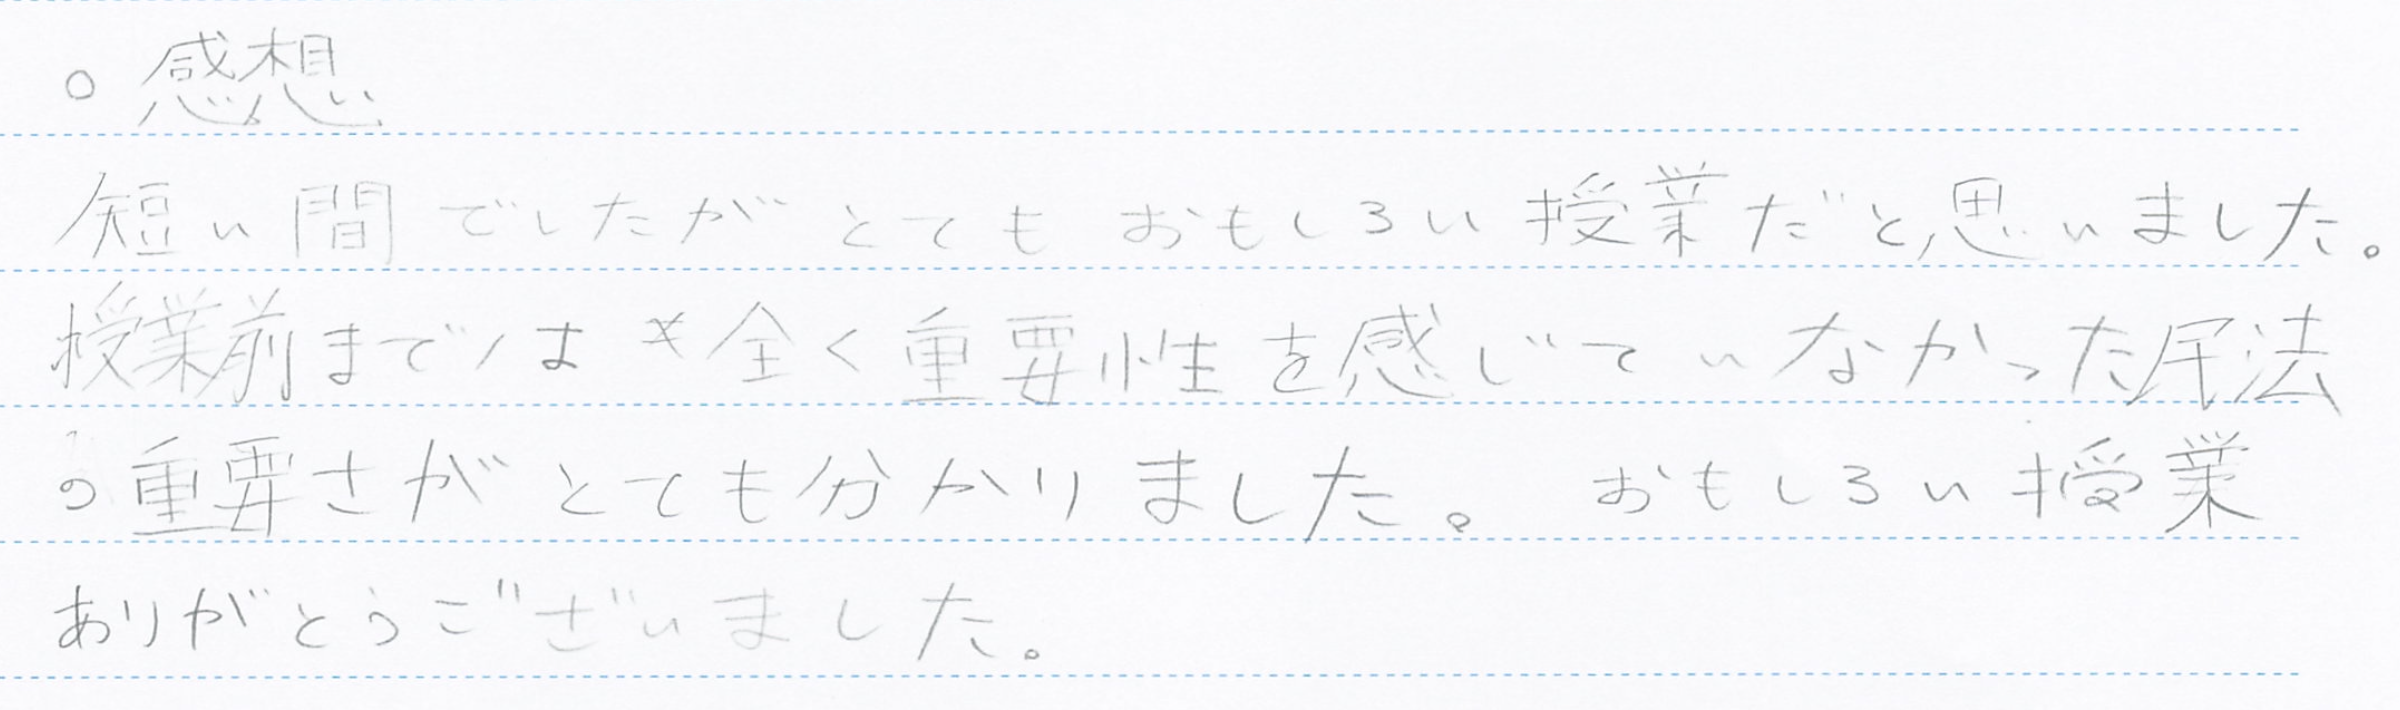 ○ 感想
短い間でしたがとてもおもしろい授業だと思いました。
授業前までは全く重要性を感じていなかった民法
の重要さがとても分かりました。おもしろい授業
ありがとうございました。